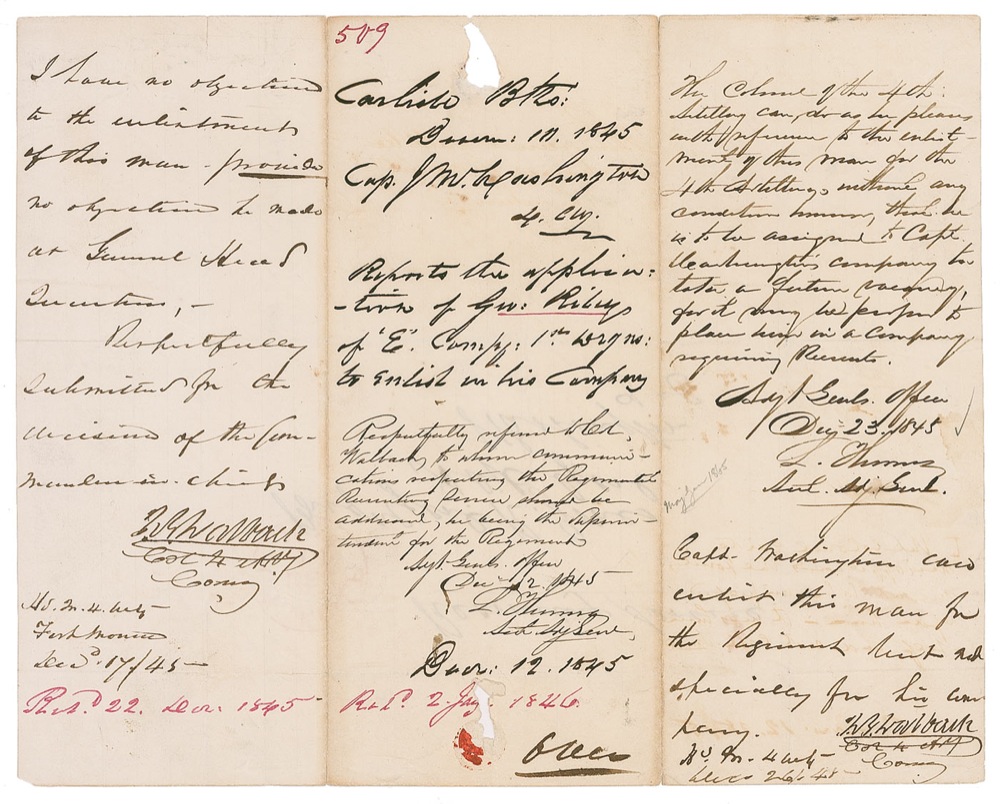 I have no objection
to the enlistment
of this man - provide
no objection be made
at General Head
Quarters, -
Respectfully
submitted for the
decision of the Com-
mander-in-chief
J B Walbach
Col 4 Arty
Comg
Hd. Qr. 4. Arty
Fort Monroe
Decr. 17/45 -
Recd. 22. Decr. 1845 -
509
Carlisle Bks:
Decem: 10. 1845
Cap. J M. Washington
4. Arty.
Reports the applica:
-tion of Geo: Riley
of 'E'. Compy: 1st Drgns:
to Enlist in his Company
Respectfully referred to Col.
Walbach, to whom communi-
cations respecting the Regimental
Recruiting Service should be
addressed, he being the Superin-
tendent for the Regiment
Adjt. Genls. Office
Dec 12. 1845
L. Thomas
Asst. Adj Genl.
Decr: 12. 1845
Recd. 2 Jany. 1846.
over
The Colonel of the 4th
Artillery can do as he pleases
with reference to the enlist-
ment of this man for the
4th Artillery, without any
condition however, that he
is to be assigned to Capt.
Washington's company to
take a future vacancy,
for it may be proper to
place him in a company
requiring Recruits.
Adjt Genls. Office
Decr 23. 1845
L. Thomas
Asst. Adj. Genl.
Capt. Washington can
enlist this man for
the Regiment but not
specially for his com
pany.
J B Walbach
Col 4 Arty
Comg
Hd. Qr. 4 Arty
Decr 26. 45 -